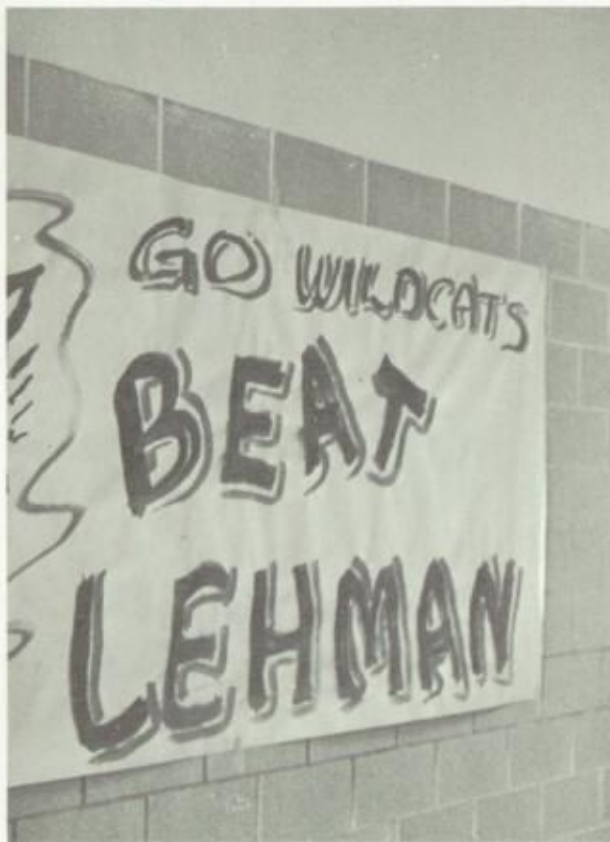 GO WILDCATS
BEAT
LEHMAN